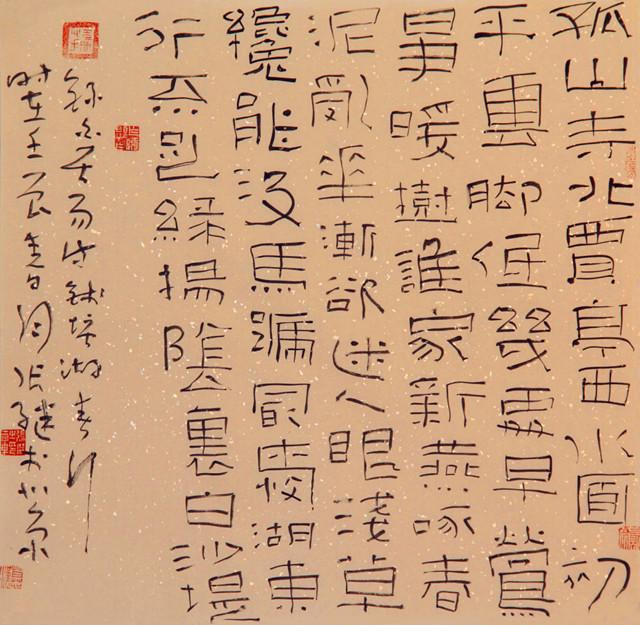 孤山寺北賈亭西水面初
平雲脚低幾處早鶯
爭暖樹誰家新燕啄春
泥亂花漸欲迷人眼淺草
纔能沒馬蹄最愛湖東
行不足綠楊陰裏白沙堤
錄白居易詩錢塘湖春行
時在壬辰春日張繼於京